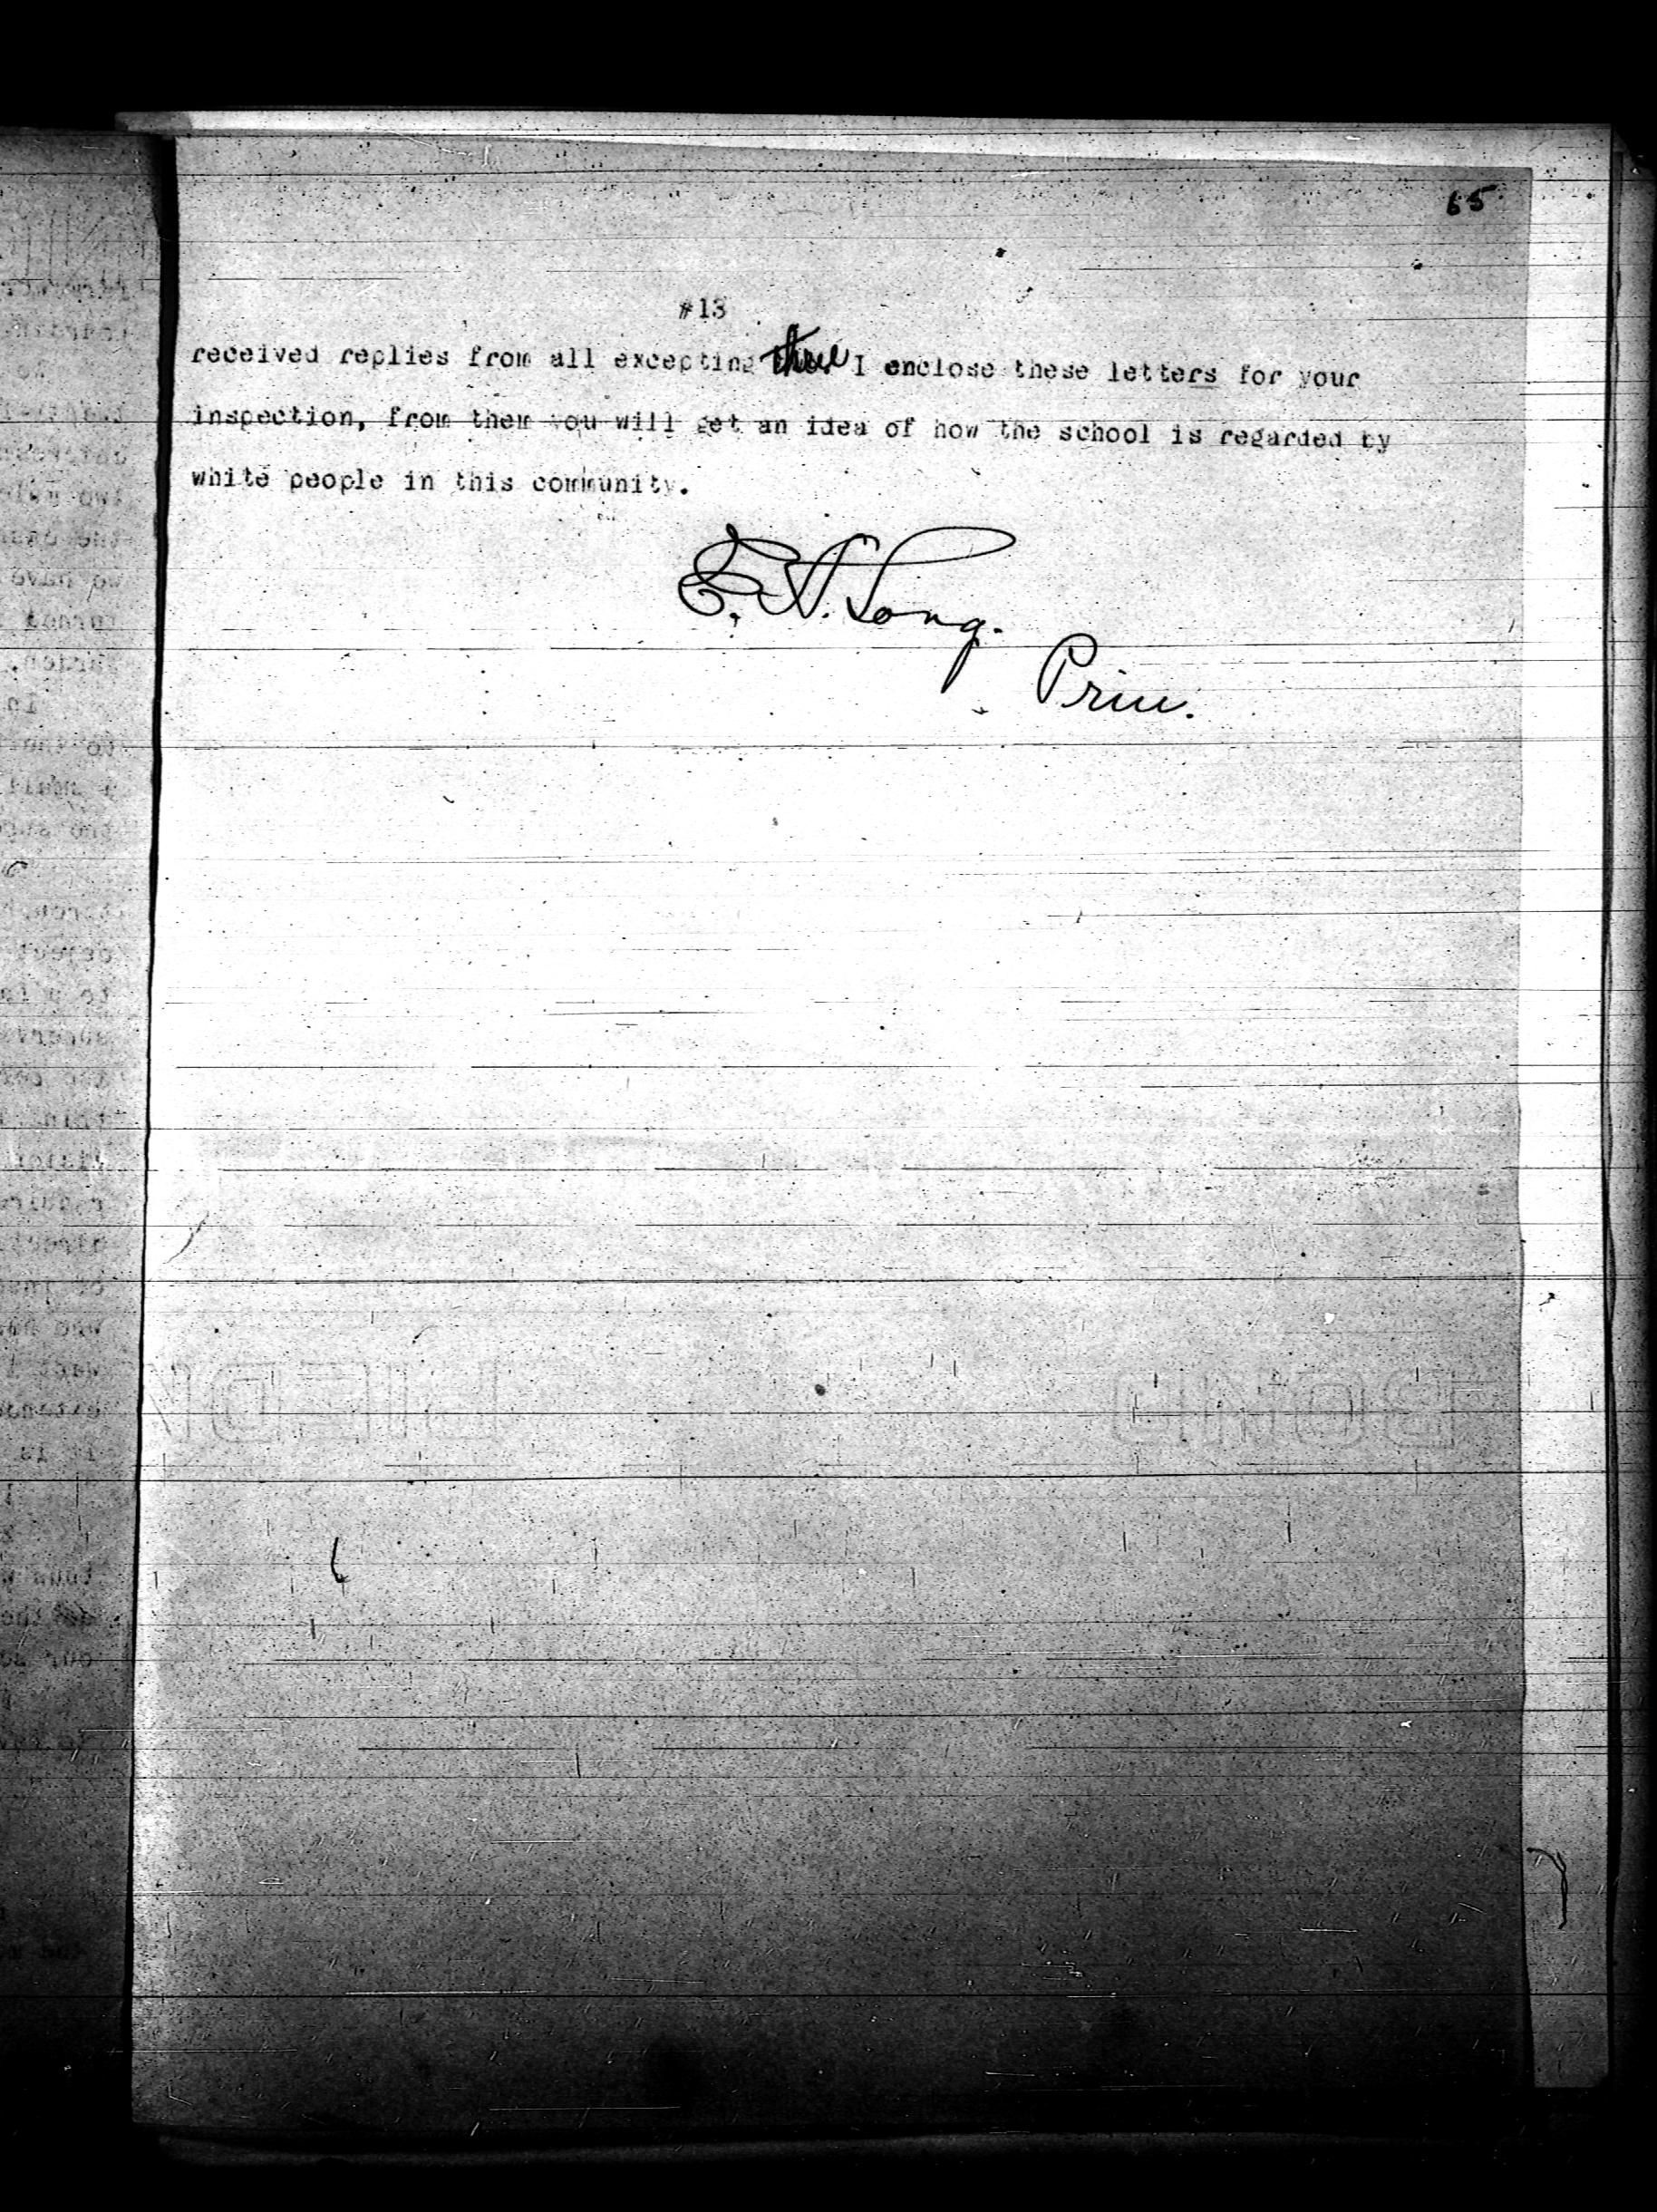 65
#13
received replies from all excepting three I enclose these letters for your
inspection, from them you will get an idea of how the school is regarded by
white people in this community.
E. A. Long.
Prin.
BOND